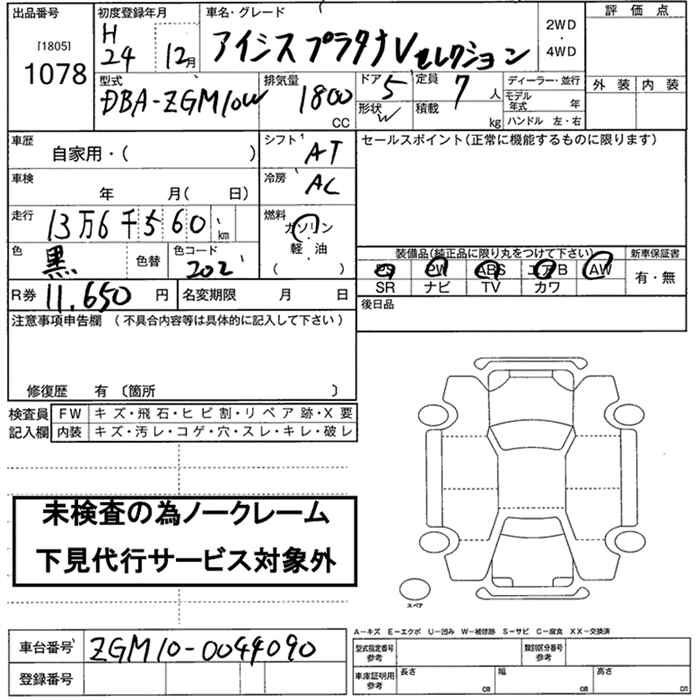 出品番号
[1805]
1078
初度登録年月
H
24 12月
車名・グレード
アイシス プラタナ Vセレクション
2WD
・
4WD
評価点
外装 内装
型式
DBA-ZGM10W
排気量
1800
CC
ドア 5
形状 W
定員 7 人
積載 kg
ディーラー・並行
モデル年式 年
ハンドル 左・右
車歴
自家用・( )
シフト
AT
セールスポイント(正常に機能するものに限ります)
車検
年 月( 日)
冷房
AC
走行
13万6千560 km
燃料
ガソリン
・
軽・油
( )
色
黒
色替
色コード
202
装備品(純正品に限り丸をつけて下さい)
新車保証書
PS PW ABS エアB AW
SR ナビ TV カワ
有・無
R券 11,650 円
名変期限 月 日
後日品
注意事項申告欄 (不具合内容等は具体的に記入して下さい)
修復歴 有 〔箇所 〕
検査員 FW キズ・飛石・ヒビ割・リペア跡・X要
記入欄 内装 キズ・汚レ・コゲ・穴・スレ・キレ・破レ
未検査の為ノークレーム
下見代行サービス対象外
スペア
A−キズ E−エクボ U−凹み W−補修跡 S−サビ C−腐食 XX−交換済
車台番号 ZGM10-0044090
登録番号
型式指定番号
参考
類別区分番号
参考
車庫証明用
参考
長さ cm
幅 cm
高さ cm